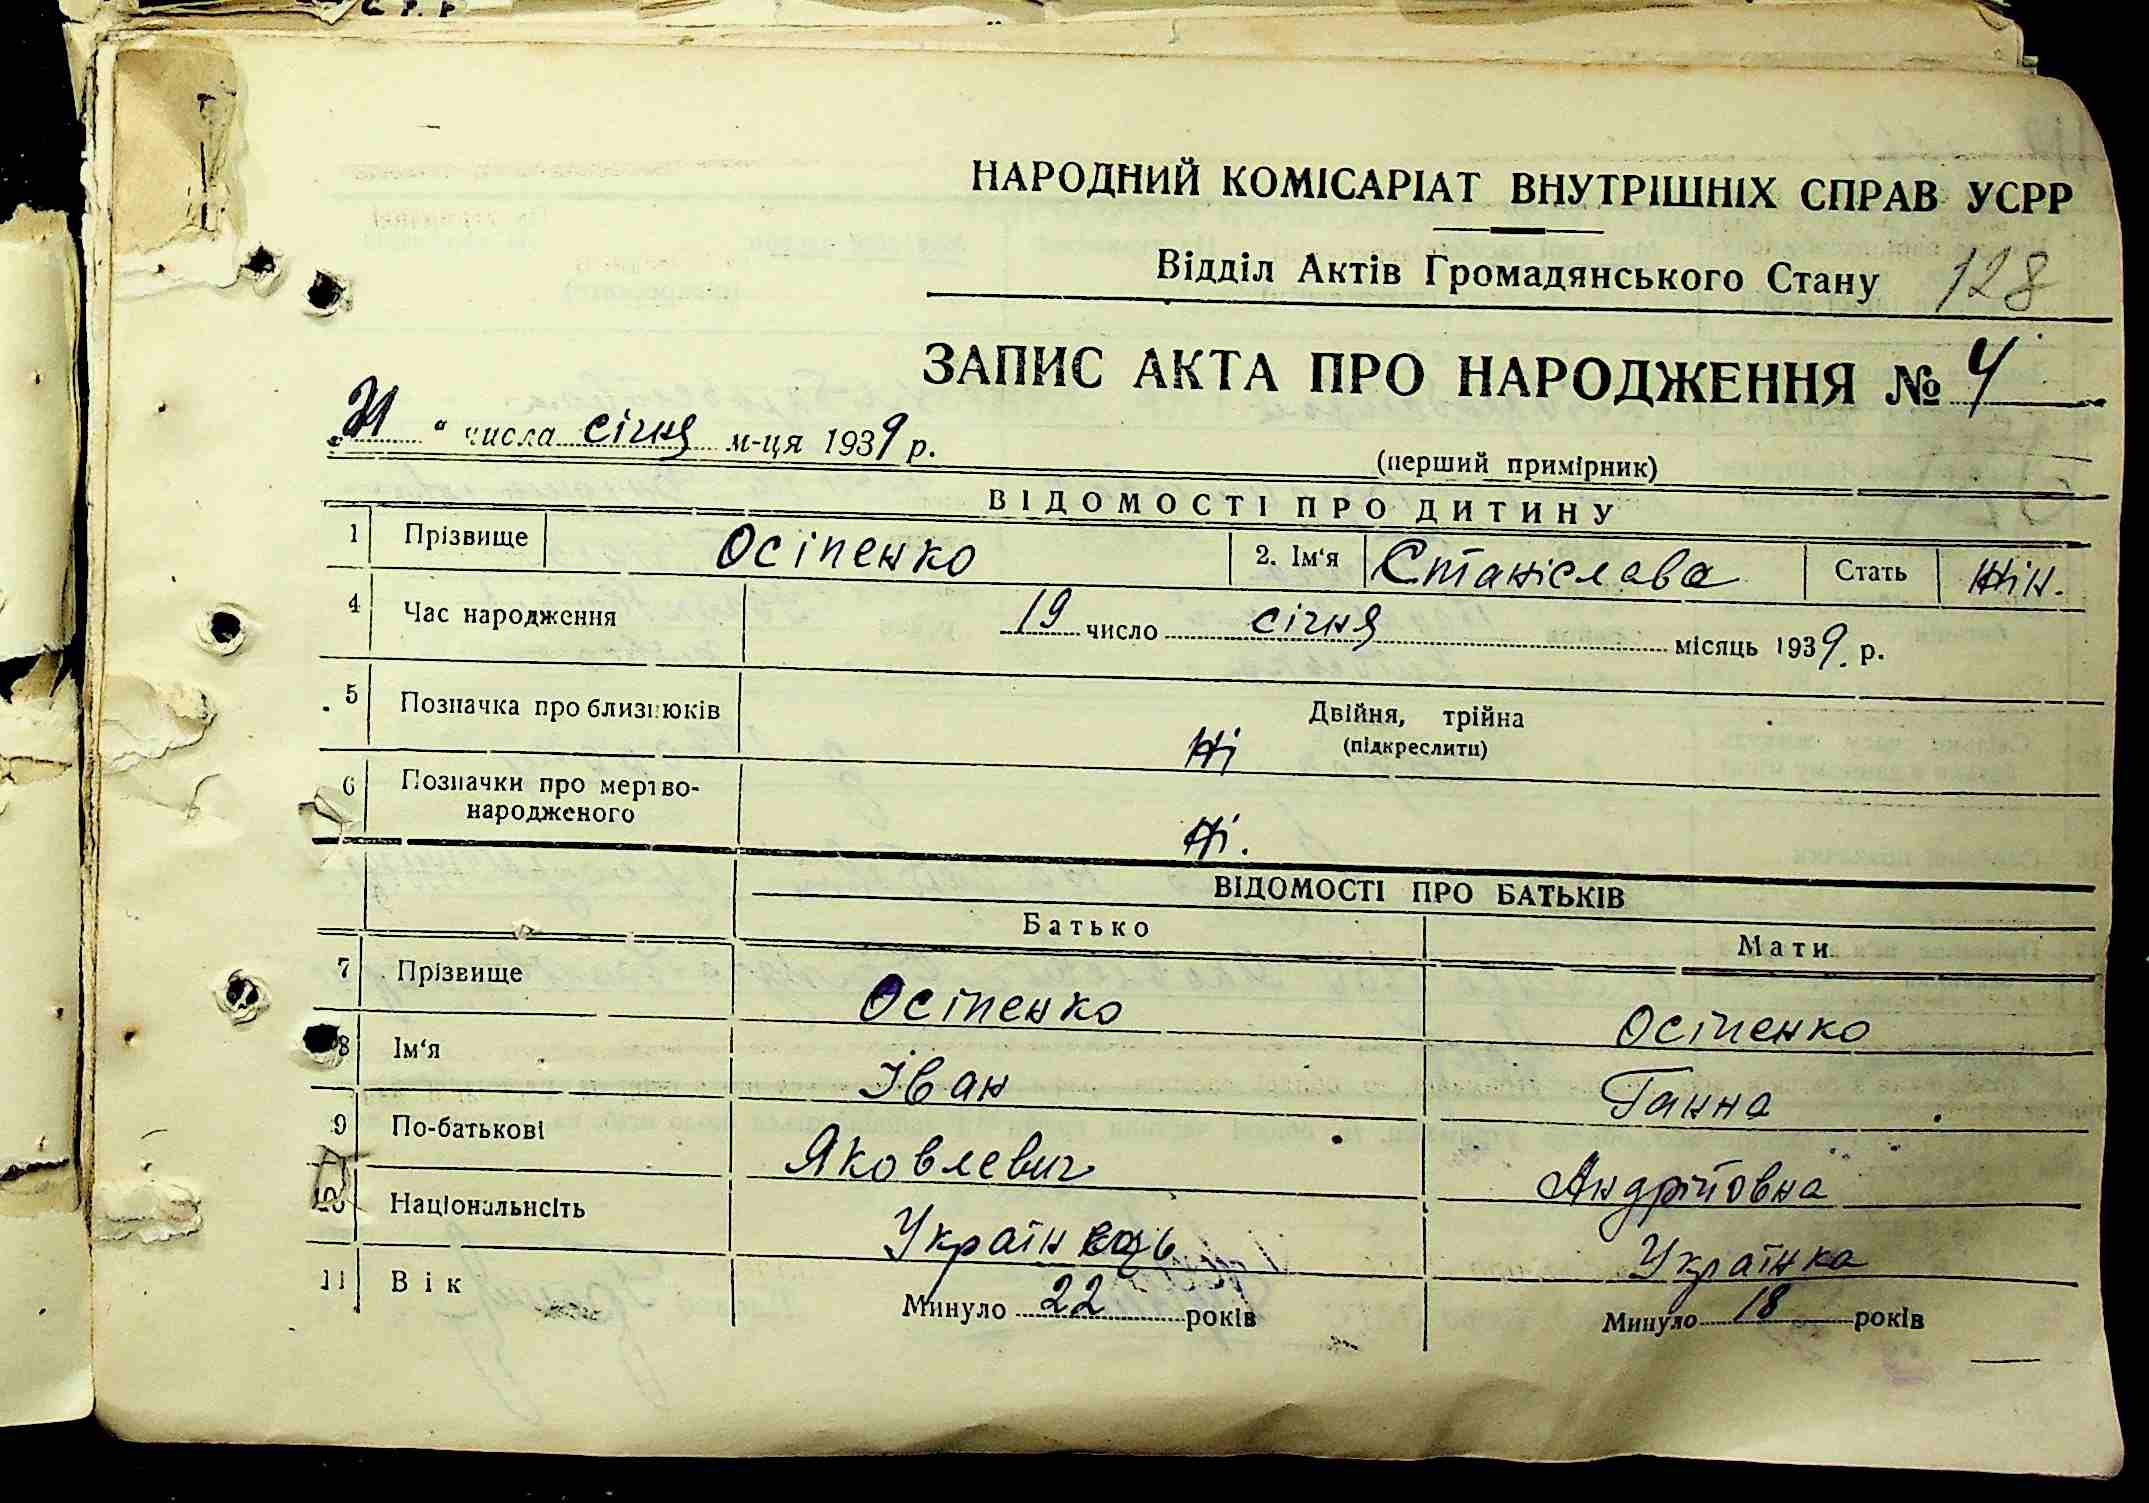 НАРОДНИЙ КОМІСАРІАТ ВНУТРІШНІХ СПРАВ УСРР
Відділ Актів Громадянського Стану 128
ЗАПИС АКТА ПРО НАРОДЖЕННЯ № 4
" 21 " числа січня м-ця 1939 р.
(перший примірник)
ВІДОМОСТІ ПРО ДИТИНУ
1 Прізвище Осіпенко 2. Ім'я Станіслава Стать жін.
4 Час народження 19 число січня місяць 1939. р.
5 Позначка про близнюків Двійня, трійна
(підкреслити)
Ні
6 Позначки про мертво-
народженого
Ні.
ВІДОМОСТІ ПРО БАТЬКІВ
Батько Мати
7 Прізвище Осіпенко Осіпенко
8 Ім'я Іван Ганна
9 По-батькові Яковлевич Андрійовна
10 Національність Українець Українка
11 Вік Минуло 22 років Минуло 18 років